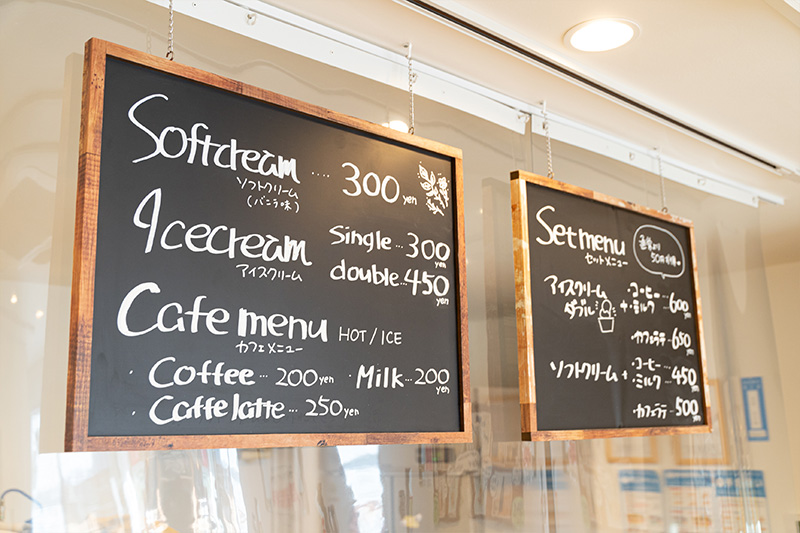 Softcream .... 300 yen
ソフトクリーム
(バニラ味)
Icecream
アイスクリーム
Single ... 300 yen
double ... 450 yen
Cafe menu HOT / ICE
カフェメニュー
・Coffee ... 200 yen ・Milk ... 200 yen
・Caffe latte ... 250 yen
Set menu
セットメニュー
通常より
50円
アイスクリーム ダブル + ・コーヒー ・ミルク ... 600
・カフェラテ 650
ソフトクリーム + ・コーヒー ・ミルク ... 450 yen
・カフェラテ 500 yen